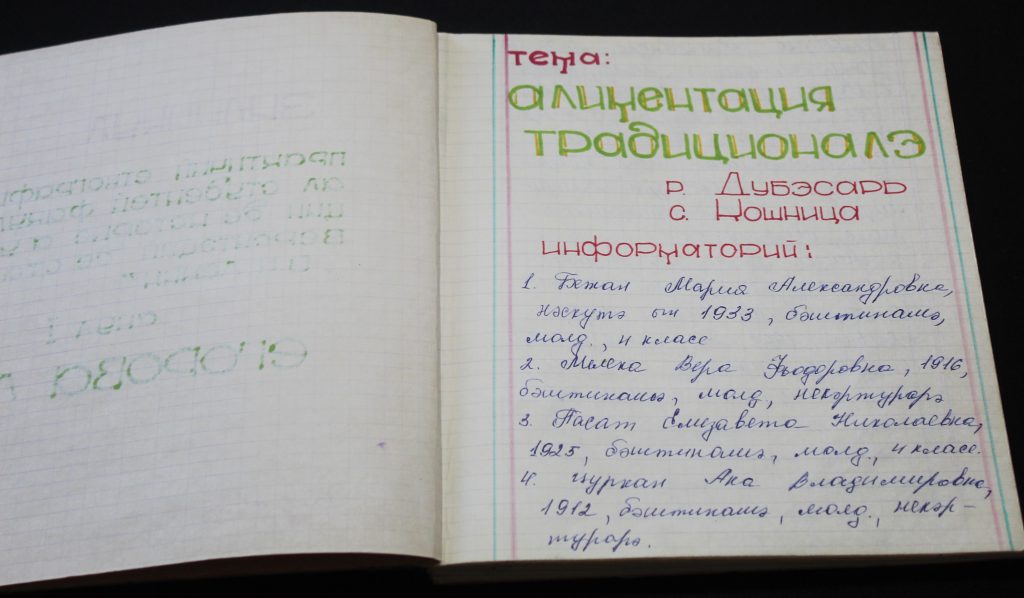 тема:
алиментация
традиционалэ
р. Дубэсарь
с. Кошница
информаторий:
1. Бежан Мария Александровна,
нэскутэ ын 1933, бэштинашэ,
молд., 4 класе
2. Мелека Вера Фьодоровна, 1916,
бэштинашэ, молд, некэртурарэ
3. Пасат Елизавета Николаевна,
1925, бэштинашэ, молд., 4 класе.
4. Цуркан Ана Владимировна,
1912, бэштинашэ, молд., некэр-
турарэ.